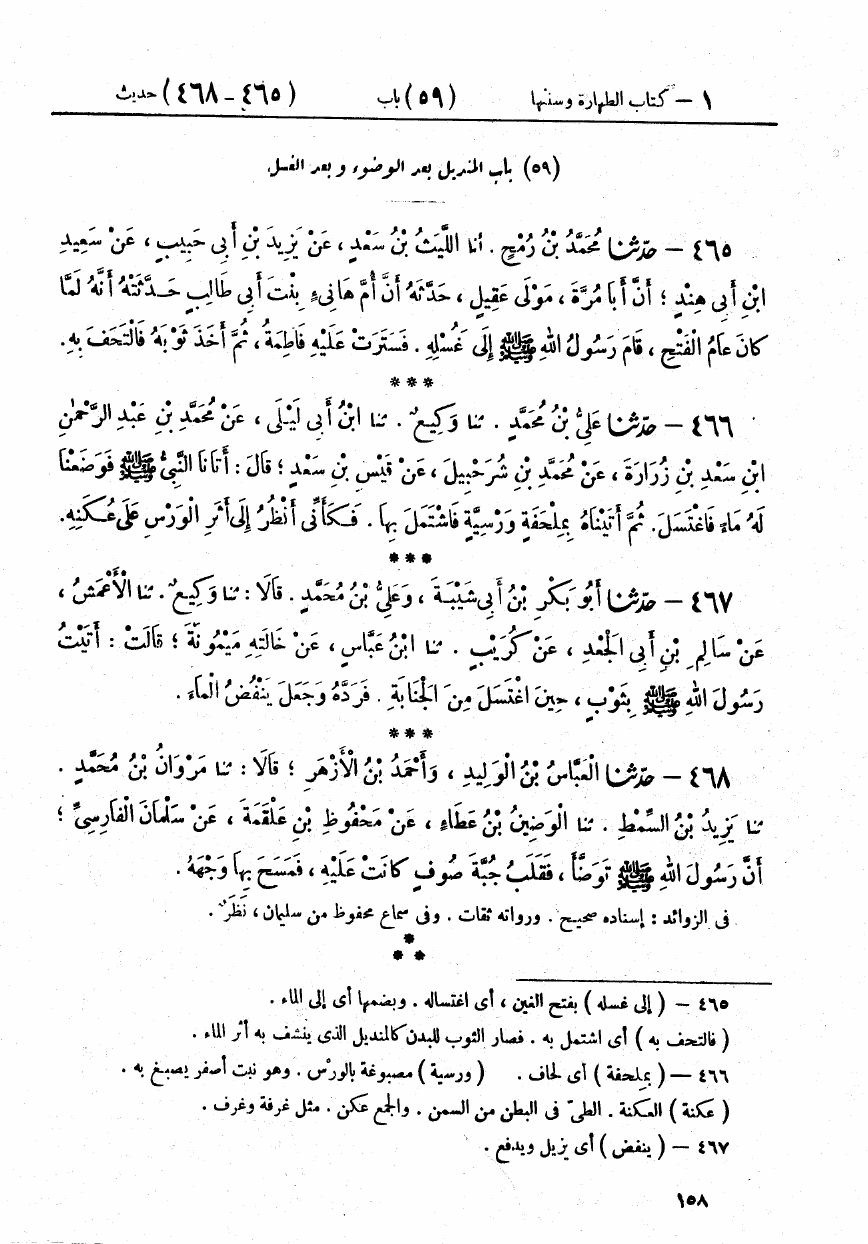 ١ – كتاب الطهارة وسننها (٥٩) باب (٤٦٥ – ٤٦٨) حديث
(٥٩) باب المنديل بعد الوضوء وبعد الغسل
٤٦٥ – حدّثنا مُحَمَّدُ بْنُ رُمْحٍ . أنا اللَّيْثُ بْنُ سَعْدٍ ، عَنْ يَزِيدَ بْنِ أَبِي حَبِيبٍ ، عَنْ سَعِيدِ
ابْنِ أَبِي هِنْدٍ ؛ أَنَّ أَبَا مُرَّةَ ، مَوْلَى عَقِيلٍ ، حَدَّثَهُ أَنَّ أُمَّ هَانِيءٍ بِنْتَ أَبِي طَالِبٍ حَدَّثَتْهُ أَنَّهُ لَمَّا
كَانَ عَامُ الْفَتْحِ ، قَامَ رَسُولُ اللهِ ﷺ إِلَى غَسْلِهِ . فَسَتَرَتْ عَلَيْهِ فَاطِمَةُ ، ثُمَّ أَخَذَ ثَوْبَهُ فَالْتَحَفَ بِهِ .
* * *
٤٦٦ – حدّثنا عَلِيُّ بْنُ مُحَمَّدٍ . ثنا وَكِيعٌ . ثنا ابْنُ أَبِي لَيْلَى ، عَنْ مُحَمَّدِ بْنِ عَبْدِ الرَّحْمٰنِ
ابْنِ سَعْدِ بْنِ زُرَارَةَ ، عَنْ مُحَمَّدِ بْنِ شُرَحْبِيلَ ، عَنْ قَيْسِ بْنِ سَعْدٍ ؛ قَالَ : أَتَانَا النَّبِيُّ ﷺ فَوَضَعْنَا
لَهُ مَاءً فَاغْتَسَلَ . ثُمَّ أَتَيْنَاهُ بِمِلْحَفَةٍ وَرْسِيَّةٍ فَاشْتَمَلَ بِهَا . فَكَأَنِّي أَنْظُرُ إِلَى أَثَرِ الْوَرْسِ عَلَى عُكَنِهِ .
* * *
٤٦٧ – حدّثنا أَبُو بَكْرِ بْنُ أَبِي شَيْبَةَ ، وَعَلِيُّ بْنُ مُحَمَّدٍ . قَالَا : ثنا وَكِيعٌ . ثنا الْأَعْمَشُ ،
عَنْ سَالِمِ بْنِ أَبِي الْجَعْدِ ، عَنْ كُرَيْبٍ . ثنا ابْنُ عَبَّاسٍ ، عَنْ خَالَتِهِ مَيْمُونَةَ ؛ قَالَتْ : أَتَيْتُ
رَسُولَ اللهِ ﷺ بِثَوْبٍ ، حِينَ اغْتَسَلَ مِنَ الْجَنَابَةِ . فَرَدَّهُ وَجَعَلَ يَنْفُضُ الْمَاءَ .
* * *
٤٦٨ – حدّثنا الْعَبَّاسُ بْنُ الْوَلِيدِ ، وَأَحْمَدُ بْنُ الْأَزْهَرِ ؛ قَالَا : ثنا مَرْوَانُ بْنُ مُحَمَّدٍ .
ثنا يَزِيدُ بْنُ السِّمْطِ . ثنا الْوَضِينُ بْنُ عَطَاءٍ ، عَنْ مَحْفُوظِ بْنِ عَلْقَمَةَ ، عَنْ سَلْمَانَ الْفَارِسِيِّ ؛
أَنَّ رَسُولَ اللهِ ﷺ تَوَضَّأَ ، فَقَلَبَ جُبَّةَ صُوفٍ كَانَتْ عَلَيْهِ ، فَمَسَحَ بِهَا وَجْهَهُ .
فى الزوائد : إسناده صحيح . ورواته ثقات . وفى سماع محفوظ من سليمان ، نَظَرٌ .
*
* *
٤٦٥ – ( إلى غسله ) بفتح الغين ، أى اغتساله . وبضمها أى إلى الماء .
( فالتحف به ) أى اشتمل به . فصار الثوب للبدن كالمنديل الذى ينشف به أثر الماء .
٤٦٦ – ( بملحفة ) أى لحاف . ( ورسية ) مصبوغة بالورْس . وهو نبت أصفر يصبغ به .
( عكنة ) العكنة . الطىّ فى البطن من السمن . والجمع عكن . مثل غرفة وغرف .
٤٦٧ – ( ينفض ) أى يزيل ويدفع .
١٥٨